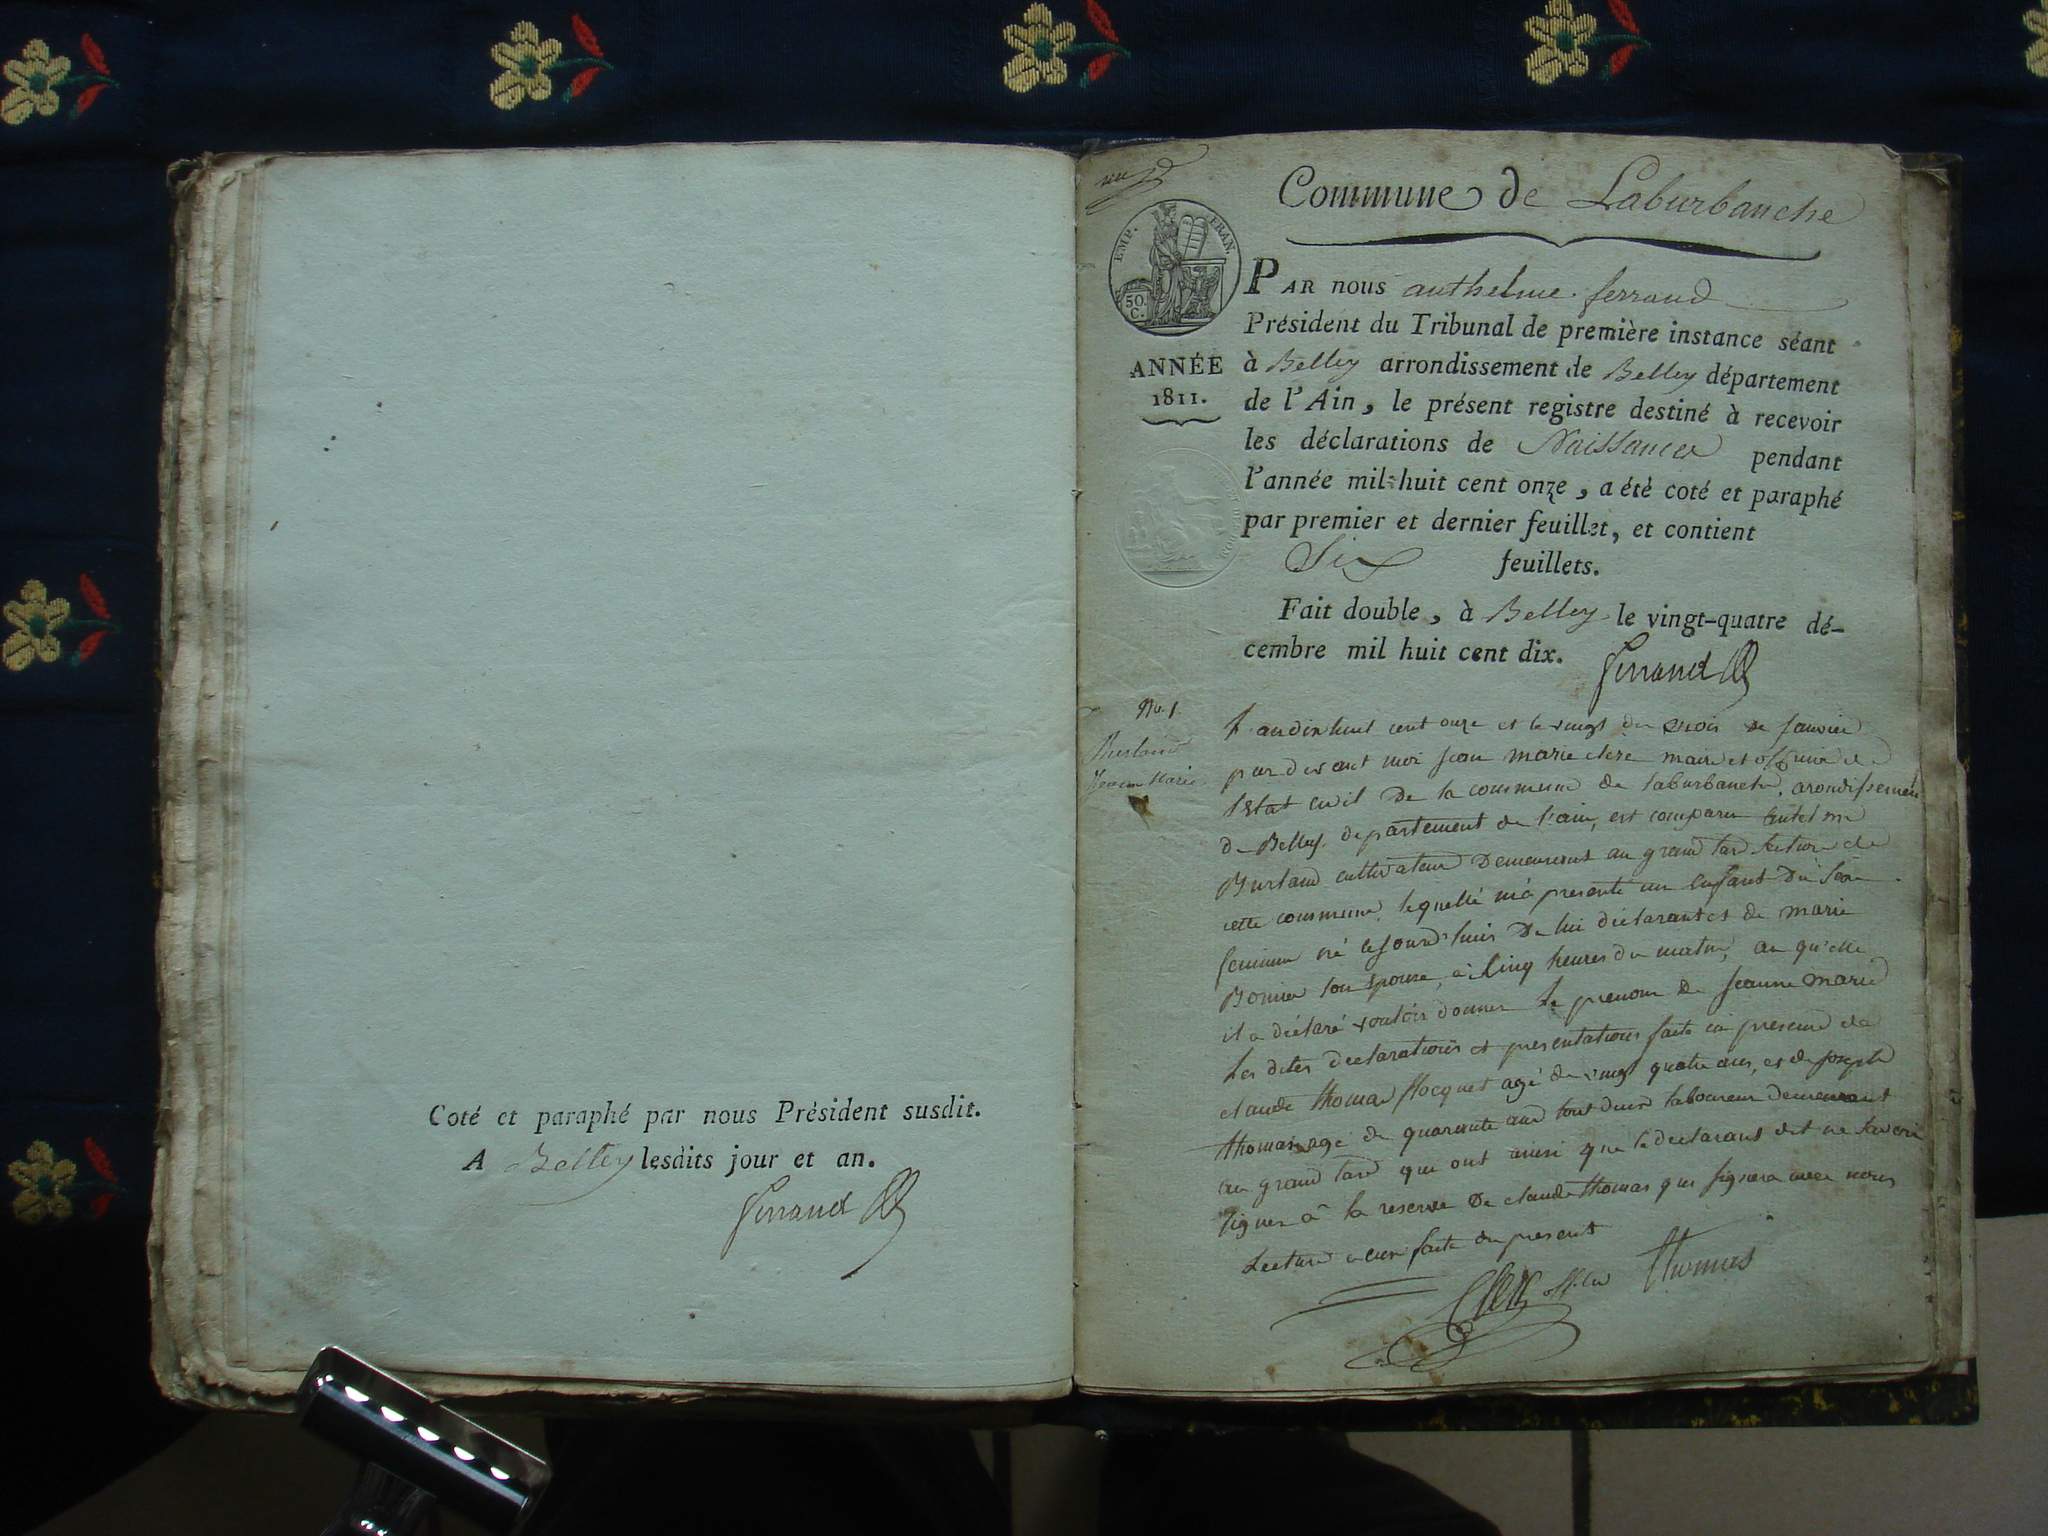 Coté et paraphé par nous Président susdit.
A Belley lesdits jour et an.
Ferrand
Commune de Laburbanche
EMP. FRAN.
50.
C.
PAR nous anthelme ferrand
Président du Tribunal de première instance séant
ANNÉE
1811.
à Belley arrondissement de Belley département
de l'Ain, le présent registre destiné à recevoir
les déclarations de Naissances pendant
l'année mil huit cent onze, a été coté et paraphé
par premier et dernier feuillet, et contient
Six feuillets.
Fait double, à Belley le vingt-quatre dé-
cembre mil huit cent dix.
Ferrand
No. 1.
Burland
Jeanne Marie
L'an dix huit cent onze et le vingt du mois de janvier
par devant moi jean marie clerc maire et officier de
l'Etat civil De la commune de laburbanche, arondissement
de Belley, departement de l'ain, est comparu
Burland cultivateur Demeurant au grand tard section de
cette commune, lequelle m'a presenté un Enfant Du sexe
feminin né cejourd'huis De lui déclarant et de marie
Bonier son Epouse, à Cinq heures du matin, au qu'elle
il a déclaré vouloir donner Le prenom De jeanne marie
Les dites declarations et presentations faite en presence de
claude thomas flocquet agé de vingt quatre ans, et de joseph
thomas agé de quarante ans tout deux laboureur demeurant
au grand tard qui ont ainsi que le declarant dit ne savoir
signer à la reserve De claude thomas qui signera avec nous
Lecture faite du present
Clerc thomas